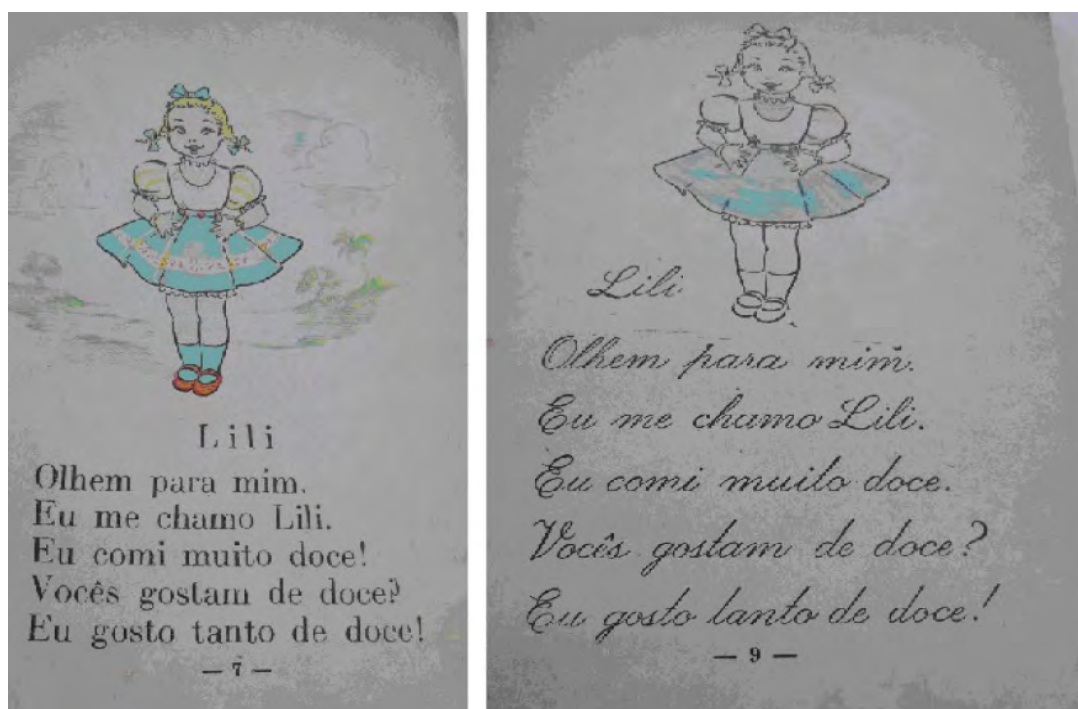 Lili
Olhem para mim.
Eu me chamo Lili.
Eu comi muito doce!
Vocês gostam de doce?
Eu gosto tanto de doce!
— 7 —
Lili
Olhem para mim.
Eu me chamo Lili.
Eu comi muito doce.
Vocês gostam de doce?
Eu gosto tanto de doce!
— 9 —